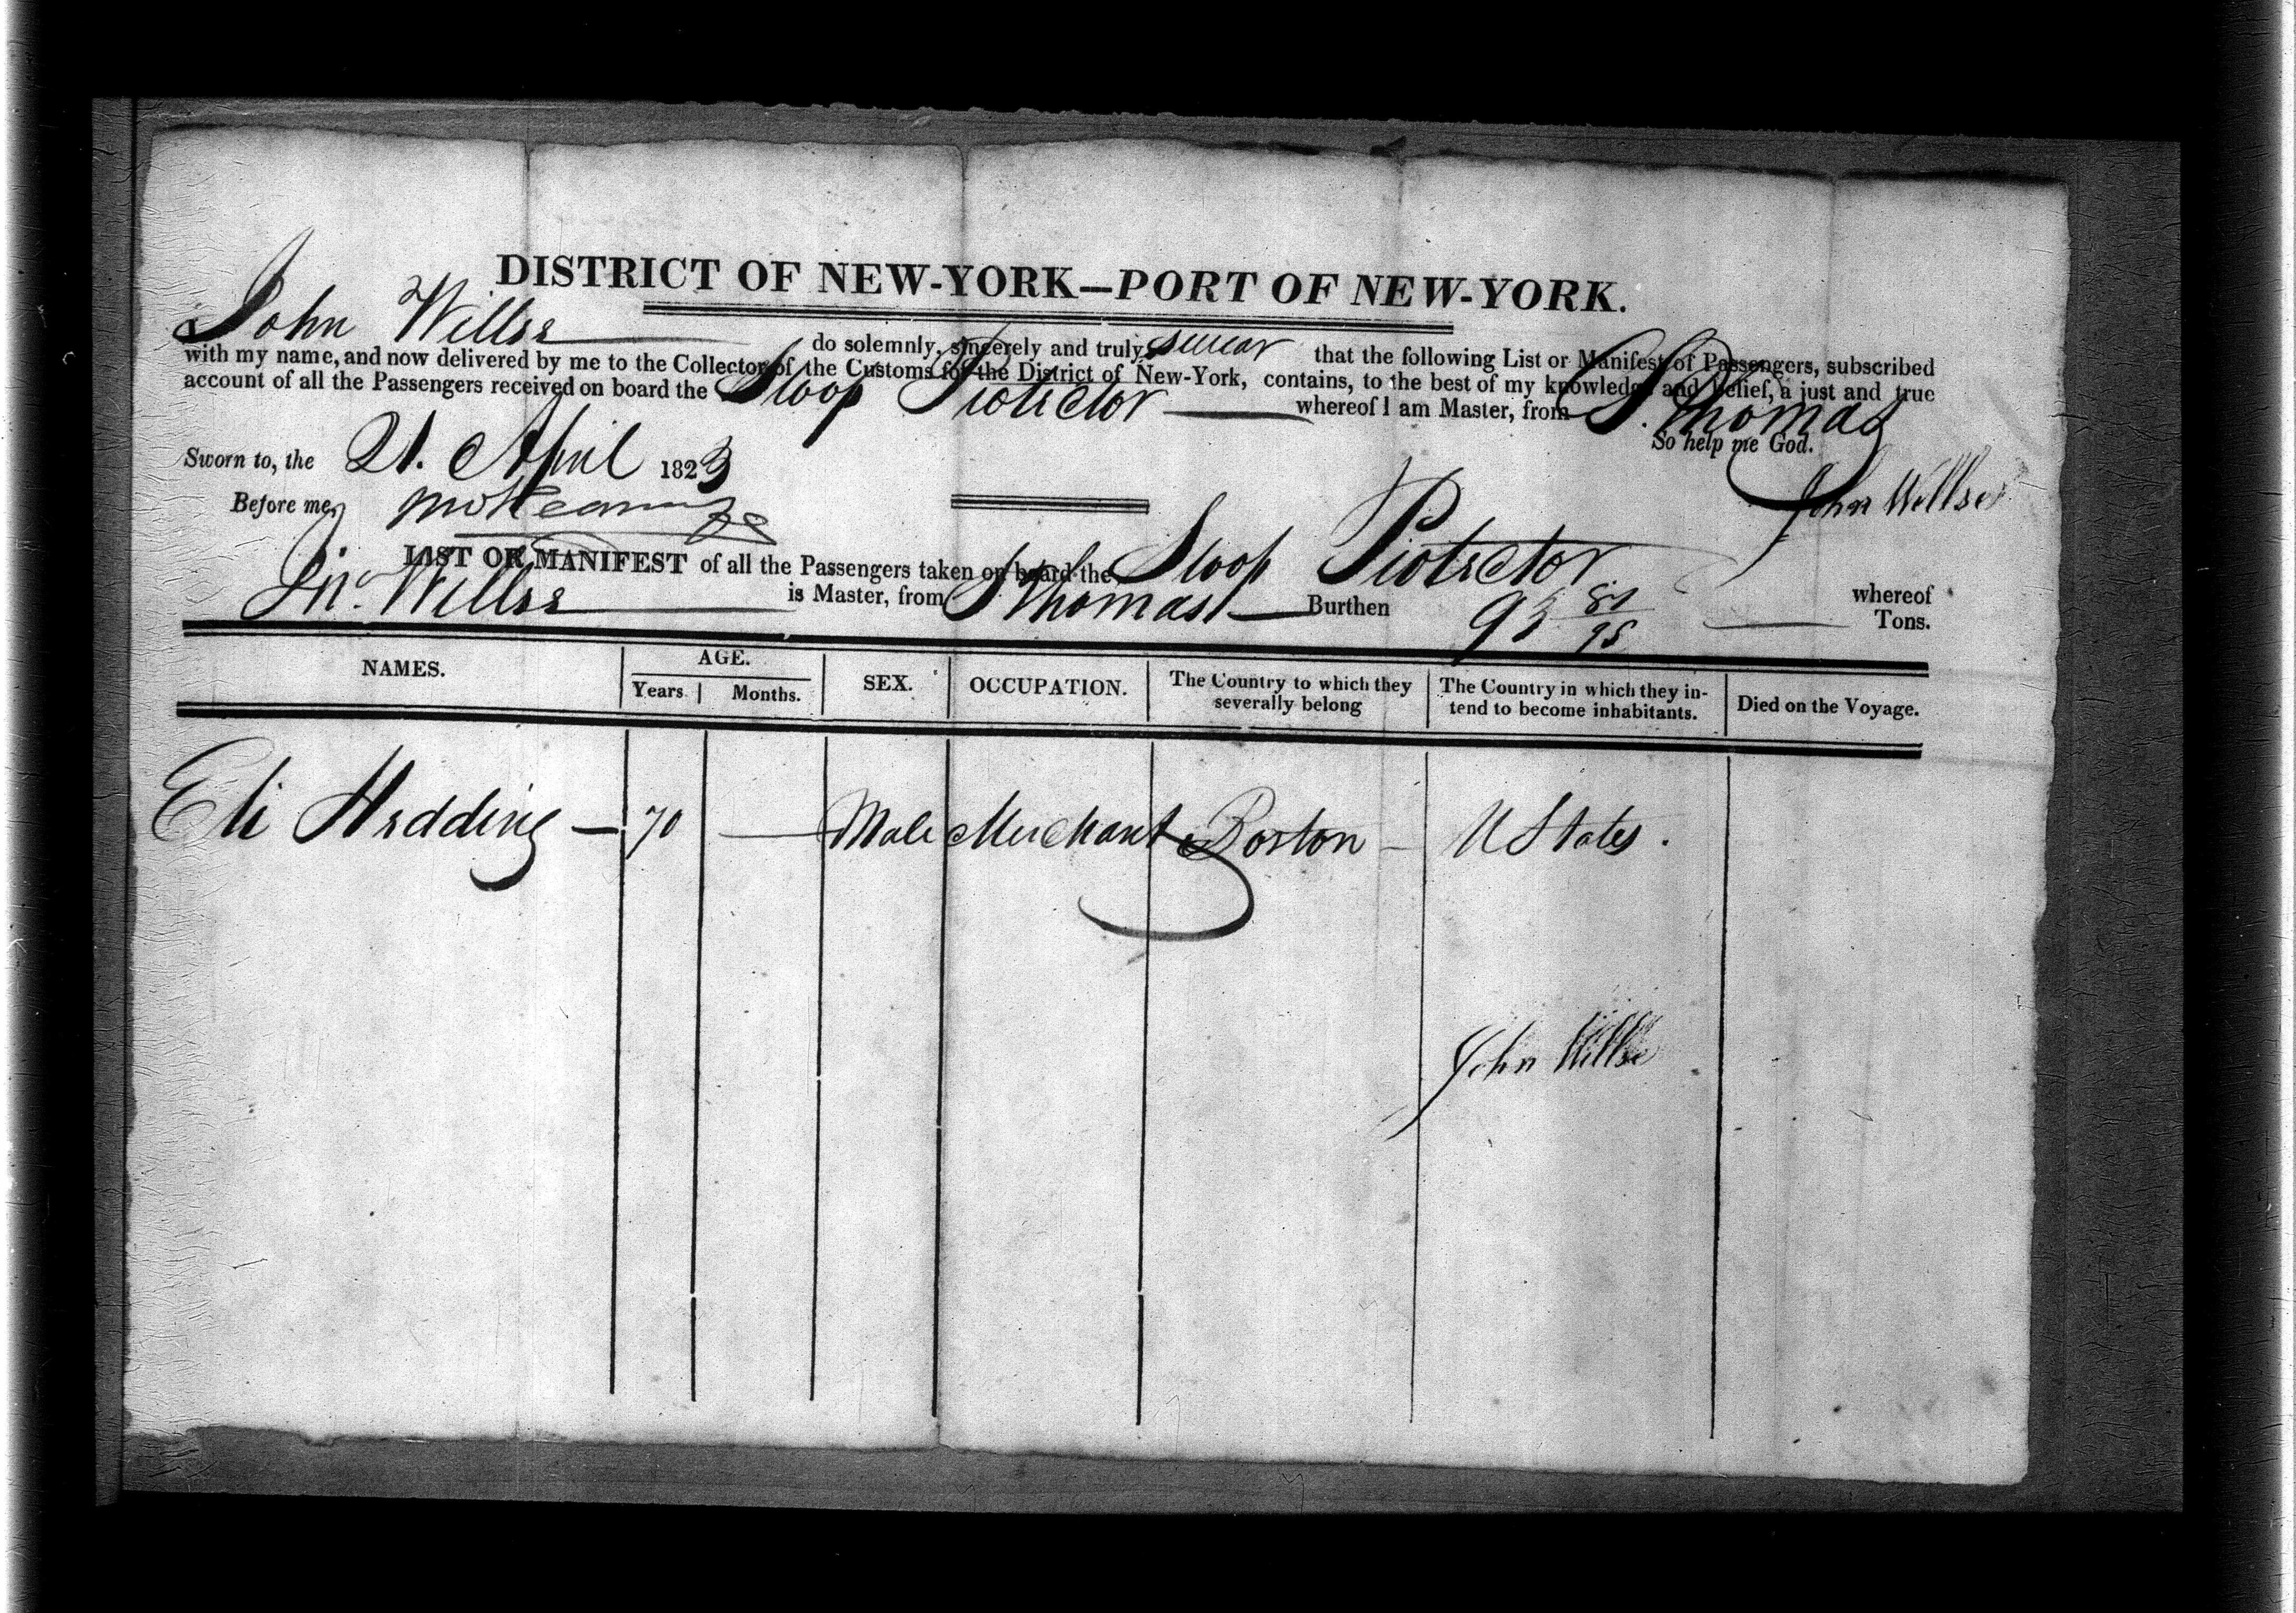 DISTRICT OF NEW-YORK—PORT OF NEW-YORK.
John Willse do solemnly, sincerely and truly swear that the following List or Manifest of Passengers, subscribed
with my name, and now delivered by me to the Collector of the Customs for the District of New-York, contains, to the best of my knowledge and belief, a just and true
account of all the Passengers received on board the Sloop Protector whereof I am Master, from St. Thomas
So help me God.
Sworn to, the 21. April 1823
John Willse
Before me,
LIST OR MANIFEST of all the Passengers taken on board the Sloop Protector whereof
Jno. Willse is Master, from St Thomas Burthen 93 Tons.
NAMES. AGE. SEX. OCCUPATION. The Country to which they severally belong The Country in which they in-
tend to become inhabitants. Died on the Voyage.
Years Months.
Eli Hedding — 70 — Male Merchant Boston — U States.
John Willse